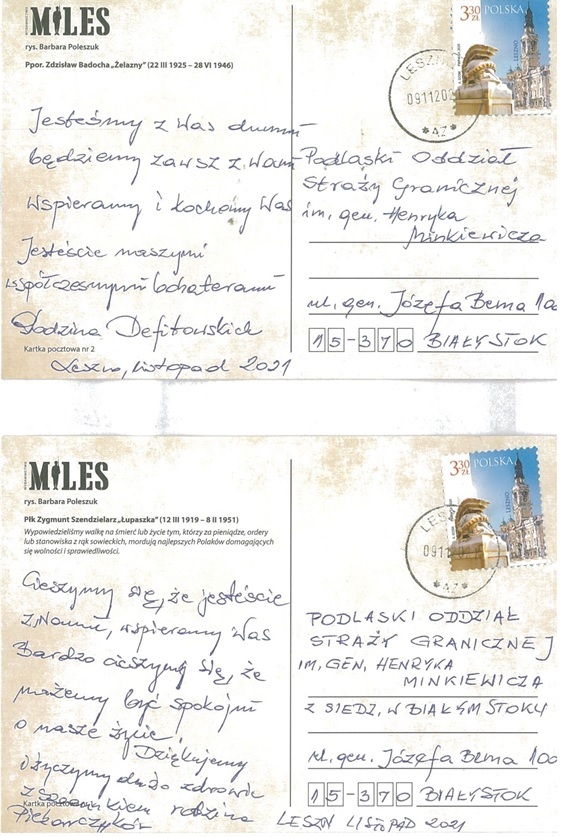 WYDAWNICTWO
MILES
rys. Barbara Poleszuk
Ppor. Zdzisław Badocha „Żelazny" (22 III 1925 – 28 VI 1946)
Jesteśmy z Was dumni
będziemy zawsz z Wami
Wspieramy i kochamy Was
Jesteście naszymi
współczesnymi bohaterami
Rodzina Defitowskich
Kartka pocztowa nr 2
Leszno, listopad 2021
3,30 ZŁ POLSKA
LESZNO
LESZN
091120
*AZ*
Podlaski Oddział
Straży Granicznej
im. gen. Henryka
Minkiewicza
ul. gen. Józefa Bema 100
15-370 BIAŁYSTOK
WYDAWNICTWO
MILES
rys. Barbara Poleszuk
Płk Zygmunt Szendzielarz „Łupaszka" (12 III 1919 – 8 II 1951)
Wypowiedzieliśmy walkę na śmierć lub życie tym, którzy za pieniądze, ordery
lub stanowiska z rąk sowieckich, mordują najlepszych Polaków domagających
się wolności i sprawiedliwości.
Cieszymy się, że jesteście
z Nami, wspieramy Was
Bardzo cieszymy się, że
możemy być spokojni
o nasze życie,
Dziękujemy
i życzymy dużo zdrowia
z szacunkiem rodzina
Kartka pocztowa
Piekarczyków
LESZN LISTOPAD 2021
3,30 ZŁ POLSKA
LESZNO
LES
0911
*AZ*
PODLASKI ODDZIAŁ
STRAŻY GRANICZNEJ
IM. GEN. HENRYKA
MINKIEWICZA
Z SIEDZ. W BIAŁYMSTOKU
ul. gen. Józefa Bema 100
15-370 BIAŁYSTOK